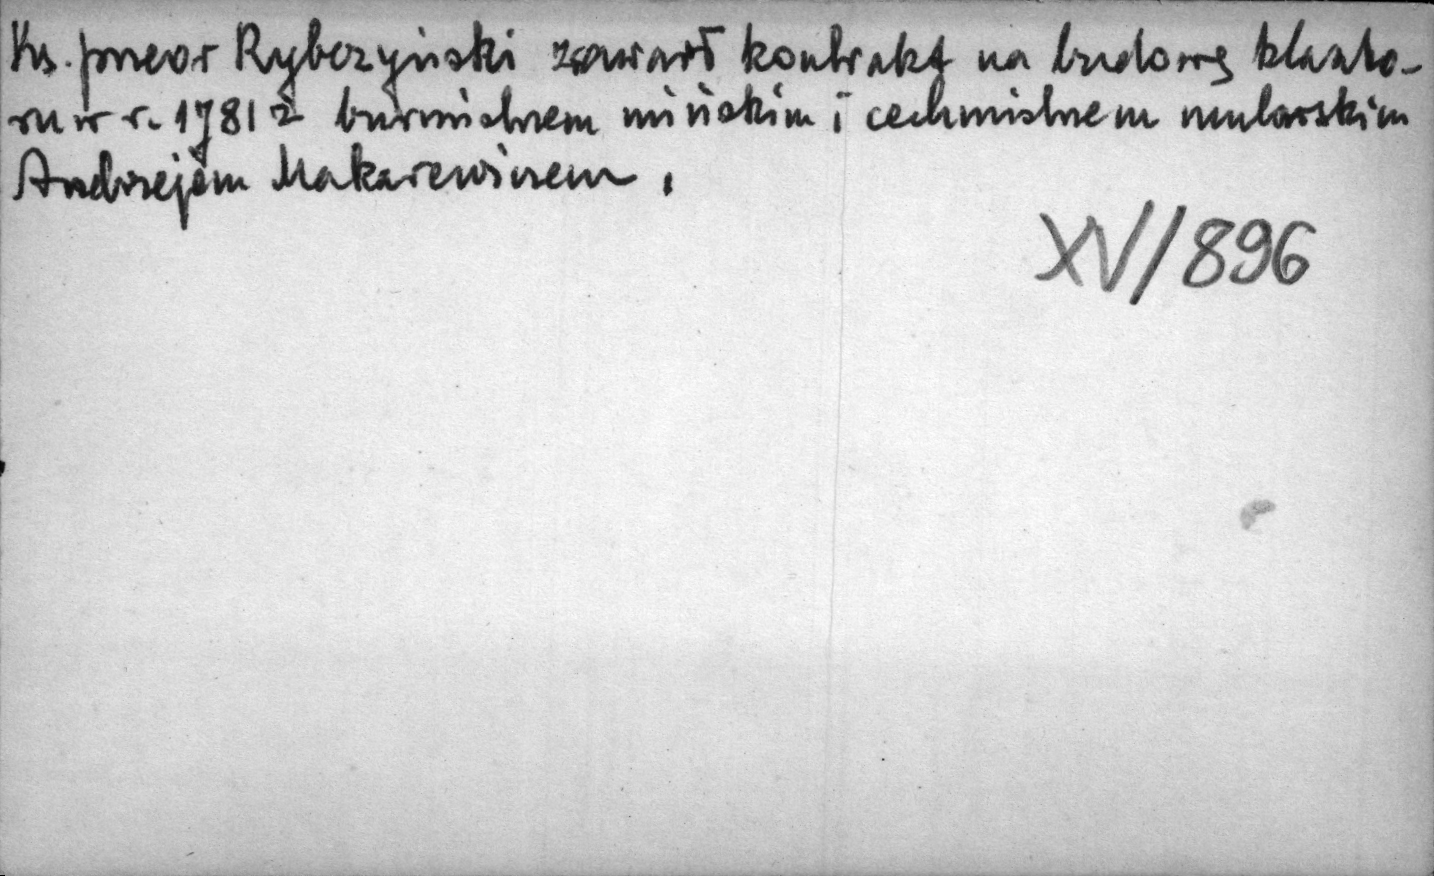 Ks. przeor Rybczyński zawarł kontrakt na budowę klaszto-
ru w r. 1781 z burmistrzem mińskim i cechmistrzem mularskim
Andrzejem Makarewiczem.
XV/896